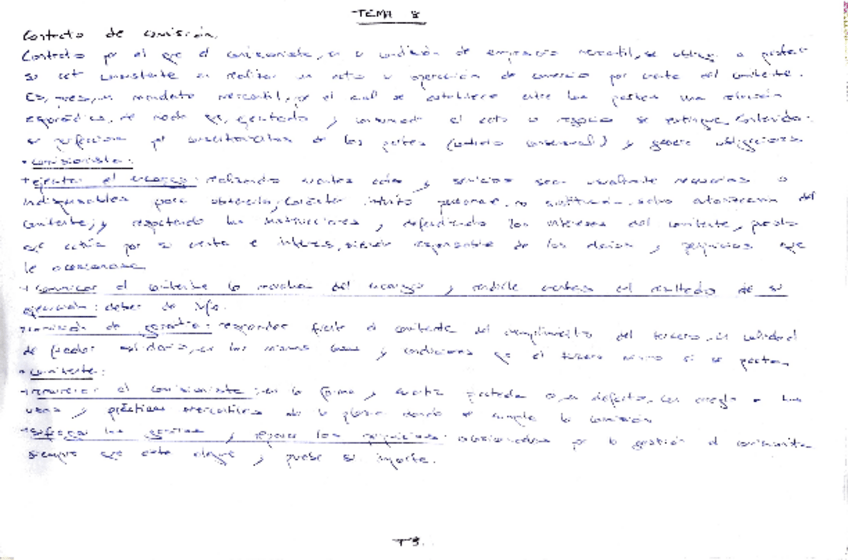 TEMA 8
Contrato de comisión.
Contrato por el que el comisionista, en su condición de empresario mercantil, se obliga a prestar
su consistente en realizar un acto u operación de comercio por cuenta del comitente.
Es, pues, un mandato mercantil, por el cual se establece entre las partes una relación
esporádica, de modo que, ejecutado y consumado el acto o negocio se extingue. Contenido:
se perfecciona por consentimiento de las partes (contrato consensual) y genera obligaciones.
• comisionista:
ejecutar el encargo: realizando cuantos actos y servicios sean usualmente necesarios o
indispensables para obtenerlo, carácter intuito personae, no sustitución, salvo autorización del
comitente; y respetando las instrucciones y defendiendo los intereses del comitente, puesto
que actúa por su cuenta e interés, siendo responsable de los daños y perjuicios que
le ocasionase
comunicar al comitente la marcha del encargo y rendirle cuentas del resultado de su
ejecución: deber de info.
comisión de garantía: responder frente al comitente del cumplimiento del tercero, en calidad
de fiador solidario, en los mismos y condiciones que el tercero mismo si se pacta.
• comitente:
remunerar al comisionista: en la forma y cuantía pactada o, en defecto, con arreglo a los
usos y prácticas mercantiles de la plaza donde se cumpla la comisión
sufragar los gastos y reparar los perjuicios: ocasionados por la gestión al comisionista
siempre que este alegue y pruebe su importe.
T8.